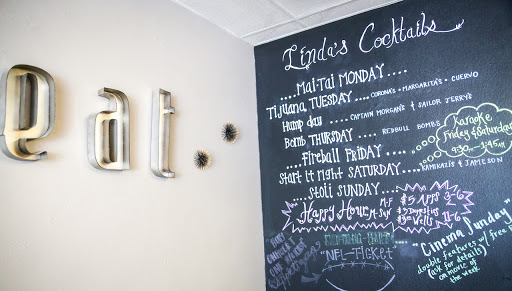 eat
Linda's Cocktails
....Mai-Tai MONDAY....
Tijuana TUESDAY....CORONA'S • MARGARITA'S • CUERVO
Hump day .... CAPTAIN MORGAN'S & SAILOR JERRY'S
Bomb THURSDAY .... REDBULL BOMBS
....Fireball FRIDAY....
Start it right SATURDAY....KAMIKAZI'S & JAMESON
....Stoli SUNDAY....
Karaoke
Friday & Saturday
9:30 - 1:45 AM
Happy Hour M-F 3-6
$5 APPS
$3 Domestics
$3 Wells
"NFL-TICKET"
"Cinema Sunday"
double features w/ free
(ask for details)
on movie of
the week